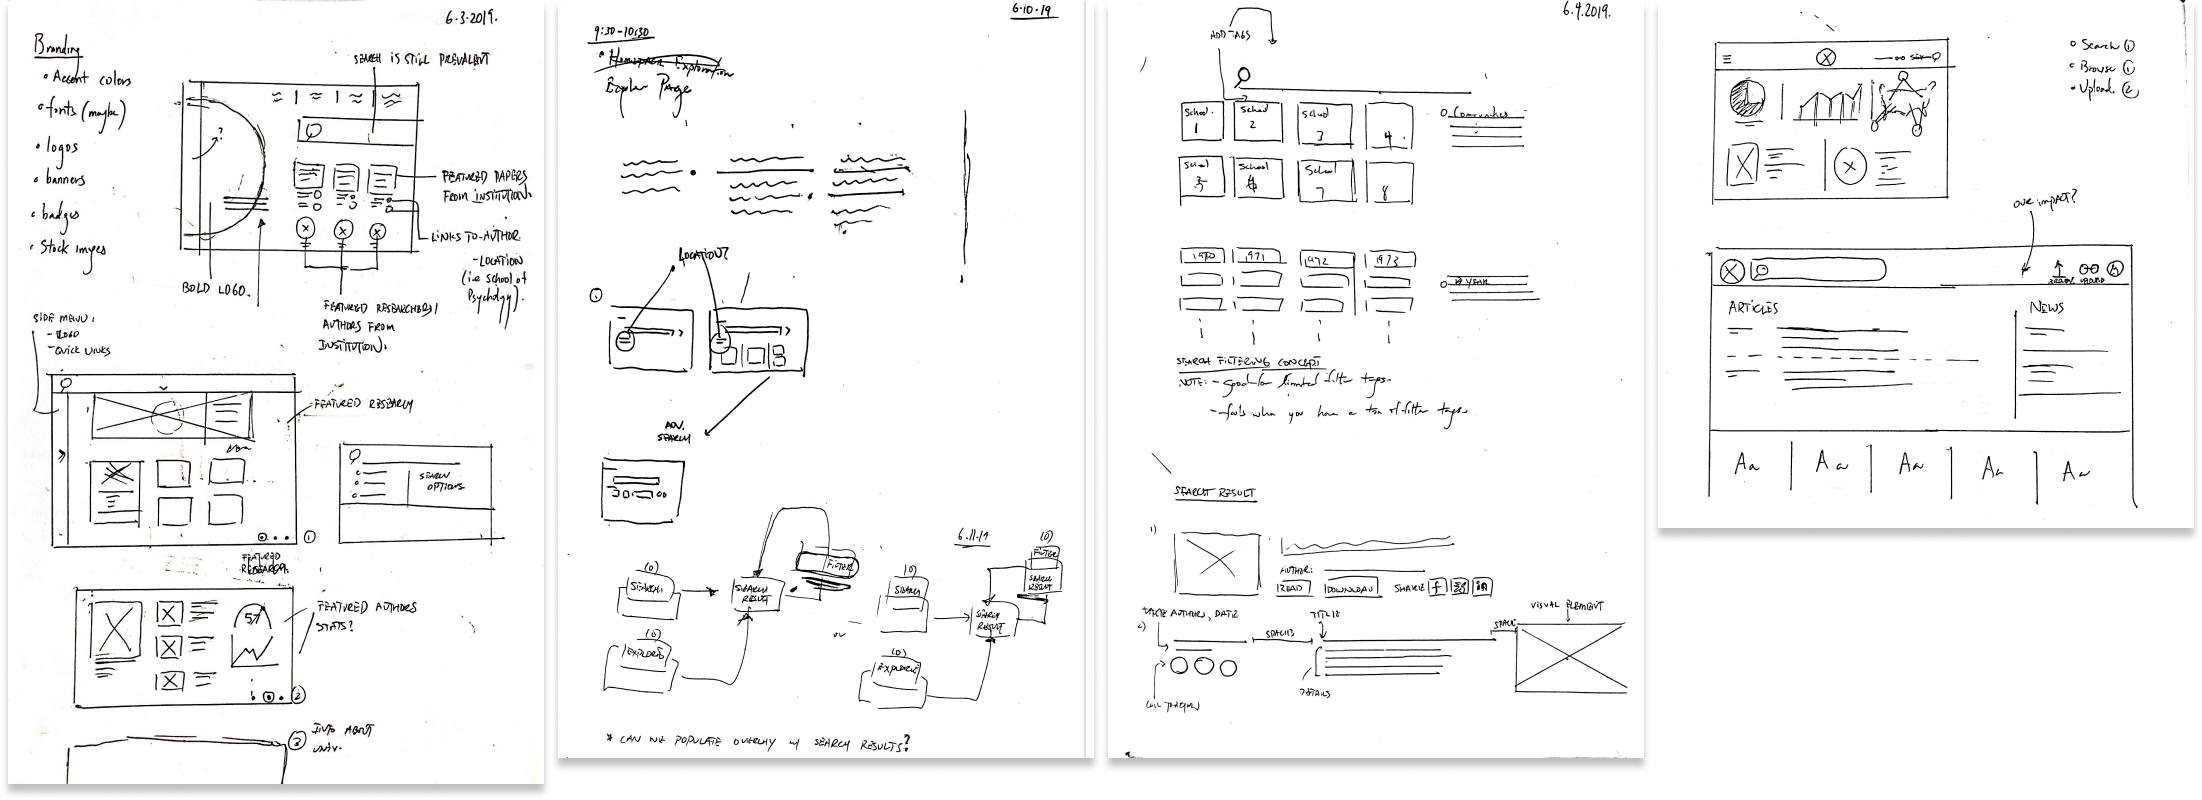 6.3.2019.
Branding
• Accent colors
• fonts (maybe)
• logos
• banners
• badges
• Stock images
SEARCH IS STILL PREVALENT
?
FEATURED PAPERS
FROM INSTITUTION.
LINKS TO AUTHOR
- LOCATION
(i.e school of
Psychology).
BOLD LOGO.
FEATURED RESEARCHERS/
AUTHORS FROM
INSTITUTION.
SIDE MENU:
- LOGO
- QUICK LINKS
FEATURED RESEARCH
SEARCH
OPTIONS
1
FEATURED
RESEARCH
FEATURED AUTHORS
STATS?
57
2
3 INFO ABOUT
UNIV.
6.10.19
9:30-10:30
• Homepage Exploration
Explore Page
LOCATION?
1
ADV.
SEARCH
6.11.19
(0)
SEARCH
SEARCH
RESULT
FILTER
(0)
EXPLORE
or
(0)
SEARCH
SEARCH
RESULT
(0)
FILTER
SEARCH
RESULT
(0)
EXPLORE
* CAN WE POPULATE OVERLAY w/ SEARCH RESULTS?
6.4.2019.
ADD TAGS
School 1
School 2
School 3
4
School 5
School 6
School 7
8
Communities
1970
1971
1972
1973
YEAR
SEARCH FILTERING CONCEPT
NOTE: - good for limited filter tags.
- fails when you have a ton of filter tags.
SEARCH RESULT
1)
AUTHOR:
READ
DOWNLOAD
SHARE
f
in
AUTHORS, DATE
TITLE
VISUAL ELEMENT
2)
SPACES
SPACE
DETAILS
• Search 1
• Browse 1
• Upload 2
OUR IMPACT?
ARTICLES
NEWS
Aa
Aa
Aa
Aa
Aa